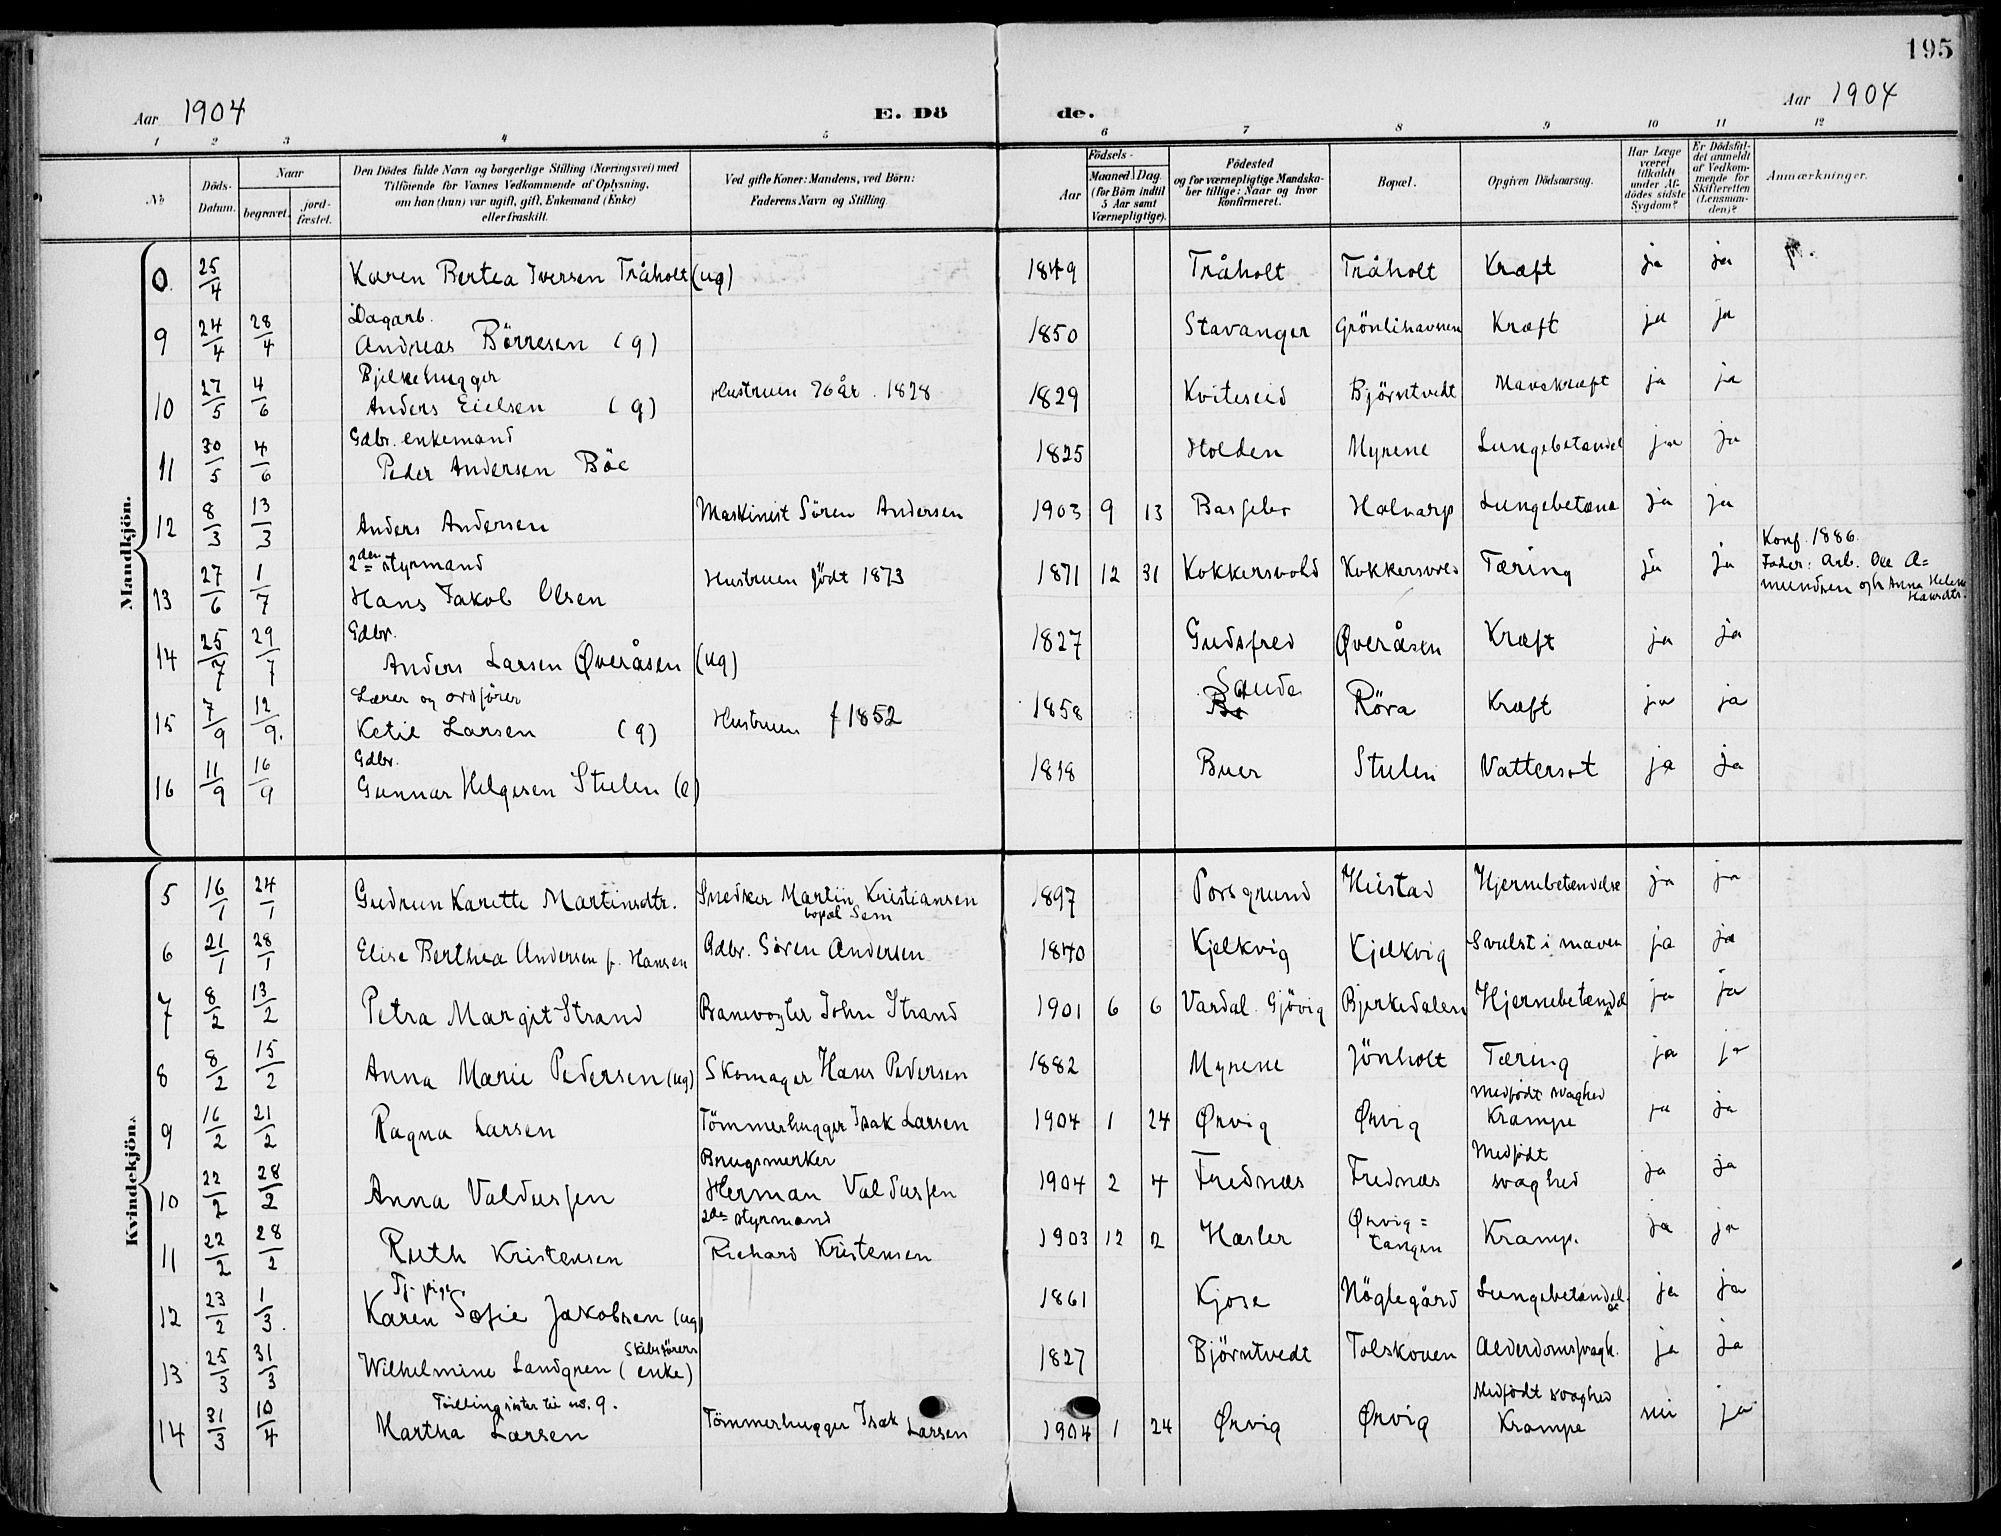 195
Aar 1904
E. Döde.
Aar 1904
1 2 3 4 5 6 7 8 9 10 11 12
№
Döds-Datum.
Naar
begravet.
jord-fæstet.
Den Dödes fulde Navn og borgerlige Stilling (Næringsvei) med
Tilföiende for Voxnes Vedkommende af Oplysning,
om han (hun) var ugift, gift, Enkemand (Enke)
eller fraskilt.
Ved gifte Koner: Mandens, ved Börn:
Faderens Navn og Stilling
Födsels-
Aar
Maaned. Dag.
(for Börn indtil
5 Aar samt
Værnepligtige).
Födested
og for værnepligtige Mandska-
ber tillige: Naar og hvor
konfirmeret.
Bopæl.
Opgiven Dödsaarsag.
Har Læge
været
tilkaldt
under Af-
dödes sidste
Sygdom?
Er Dödsfal-
det anmeldt
af Vedkom-
mende for
Skifteretten
(Lensman-
den)?
Anmærkninger.
Mandkjön.
0 25/4 Karen Bertea Iversen Tråholt (ug) 1849 Tråholt Tråholt Kræft ja ja
Dagarb.
9 24/4 28/4 Andreas Börresen (g) 1850 Stavanger Grönlihavnen Kræft ja ja
Bjelkehugger
10 27/5 4/6 Anders Eielsen (g) Hustruen 76 år. 1828 1829 Kviteseid Björntvedt Mavekræft ja ja
Gdbr. enkemand
11 30/5 4/6 Peder Andersen Böe 1825 Holden Myrene Lungebetændel ja ja
12 8/3 13/3 Anders Andersen Maskinist Sören Andersen 1903 9 13 Basseler Halvarp Lungebetænd ja ja
2den styrmand
13 27/6 1/7 Hans Jakob Olsen Hustruen födt 1873 1871 12 31 Kokkersvold Kokkersvold Tæring ja ja
Konf. 1886.
Fader: Arb. Ole A=
mundsen og h Anna Helene
Hansdtr.
Gdbr.
14 25/7 29/7 Anders Larsen Øveråsen (ug) 1827 Gudsfred Øveråsen Kræft ja ja
Lærer og ordförer
15 7/9 12/9. Ketil Larsen (g) Hustruen f 1852 1858 Saude Röra Kræft ja ja
Gdbr.
16 11/9 16/9 Gunnar Helgesen Stulen (e) 1818 Buer Stulen Vattersot ja ja
Kvindekjön.
5 16/1 24/1 Gudrun Karette Martinsdtr. Snedker Martin Kristiansen 1897 Porsgrund Hirstad Hjernebetændelse ja ja
bopæl Sem
6 21/1 28/1 Elise Berthea Andersen f. Hansen Gdbr. Sören Andersen 1840 Kjelkvig Kjelkvig Svulst i maven ja ja
7 8/2 13/2 Petra Margit Strand Banevogter John Strand 1901 6 6 Vardal. Gjövig Bjerkedalen Hjernebetændel ja ja
8 8/2 15/2 Anna Marie Pedersen (ug) Skomager Hans Pedersen 1882 Myrene Jönholt Tæring ja ja
9 16/2 21/2 Ragna Larsen Tömmerhugger Isak Larsen 1904 1 24 Ørvig Ørvig Medfödt svaghed Krampe ja ja
Brugsmerker
10 22/2 28/2 Anna Valdussen Herman Valdussen 1904 2 4 Frednæs Frednæs Medfödt svaghed ja ja
2den styrmand
11 22/2 28/2 Ruth Kristensen Richard Kristensen 1903 12 2 Hasler Ørvig= tangen Kramp. ja ja
Tj. pige
12 23/2 1/3. Karen Sofie Jakobsen (ug) 1861 Kjose Nöglegård Lungebetændel. ja ja
Skibsförers
13 25/3 31/3 Wilhelmine Landgren (enke) 1827 Björntvedt Tolskoven Alderdomssvagh. ja ja
Tvillingsöster til no. 9.
14 31/3 10/4 Martha Larsen Tömmerhugger Isak Larsen 1904 1 24 Ørvig Ørvig Medfödt svaghed Krampe nei ja